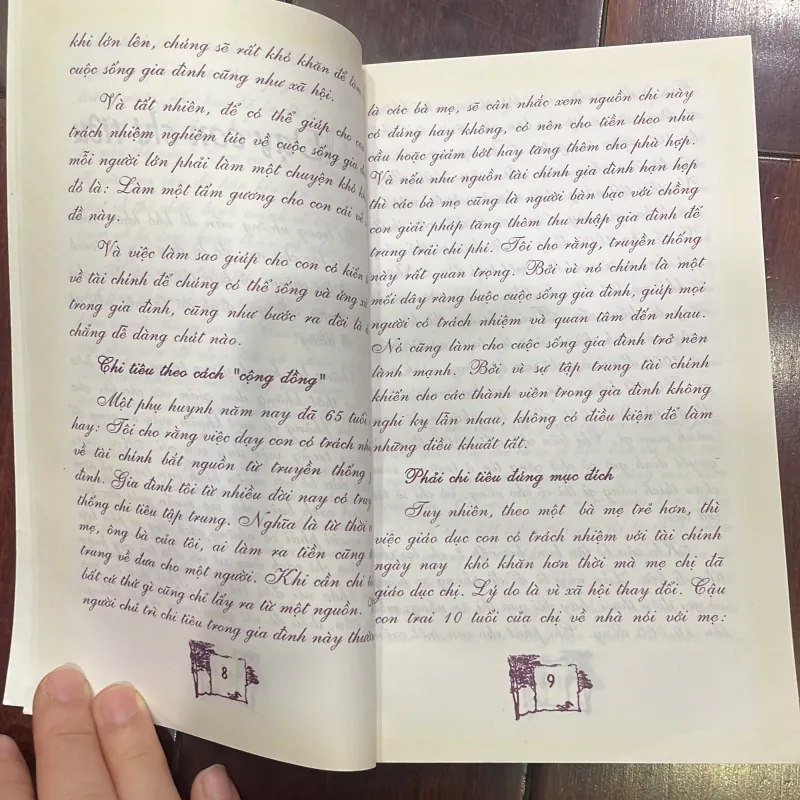 khi lớn lên, chúng sẽ rất khó khăn để làm
cuộc sống gia đình cũng như xã hội.
Và tất nhiên, để có thể giúp cho con
trách nhiệm nghiêm túc về cuộc sống gia
mỗi người lớn phải làm một chuyện khó
đó là: Làm một tấm gương cho con cái về
đề này.
Và việc làm sao giúp cho con có kiến
về tài chính để chúng có thể sống và ứng xử
trong gia đình, cũng như bước ra đời là
chẳng dễ dàng chút nào.
Chi tiêu theo cách "cộng đồng"
Một phụ huynh năm nay đã 65 tuổi
hay: Tôi cho rằng việc dạy con có trách
về tài chính bắt nguồn từ truyền thống
đình. Gia đình tôi từ nhiều đời nay có
thống chi tiêu tập trung. Nghĩa là từ thời
mẹ, ông bà của tôi, ai làm ra tiền cũng
trung về đưa cho một người. Khi cần chi
bất cứ thứ gì cũng chỉ lấy ra từ một nguồn.
người chủ trì chi tiêu trong gia đình này
8
là các bà mẹ, sẽ cân nhắc xem nguồn chi này
có đúng hay không, có nên cho tiền theo nhu
cầu hoặc giảm bớt hay tăng thêm cho phù hợp.
Và nếu như nguồn tài chính gia đình hạn hẹp
thì các bà mẹ cũng là người bàn bạc với chồng
con giải pháp tăng thêm thu nhập gia đình để
trang trải chi phí. Tôi cho rằng, truyền thống
này rất quan trọng. Bởi vì nó chính là một
mối dây ràng buộc cuộc sống gia đình, giúp mọi
người có trách nhiệm và quan tâm đến nhau.
Nó cũng làm cho cuộc sống gia đình trở nên
lành mạnh. Bởi vì sự tập trung tài chính
khiến cho các thành viên trong gia đình không
nghi kỵ lẫn nhau, không có điều kiện để làm
những điều khuất tất.
Phải chi tiêu đúng mục đích
Tuy nhiên, theo một bà mẹ trẻ hơn, thì
việc giáo dục con có trách nhiệm với tài chính
ngày nay khó khăn hơn thời mà mẹ chị đã
giáo dục chị. Lý do là vì xã hội thay đổi. Cậu
con trai 10 tuổi của chị về nhà nói với mẹ:
9